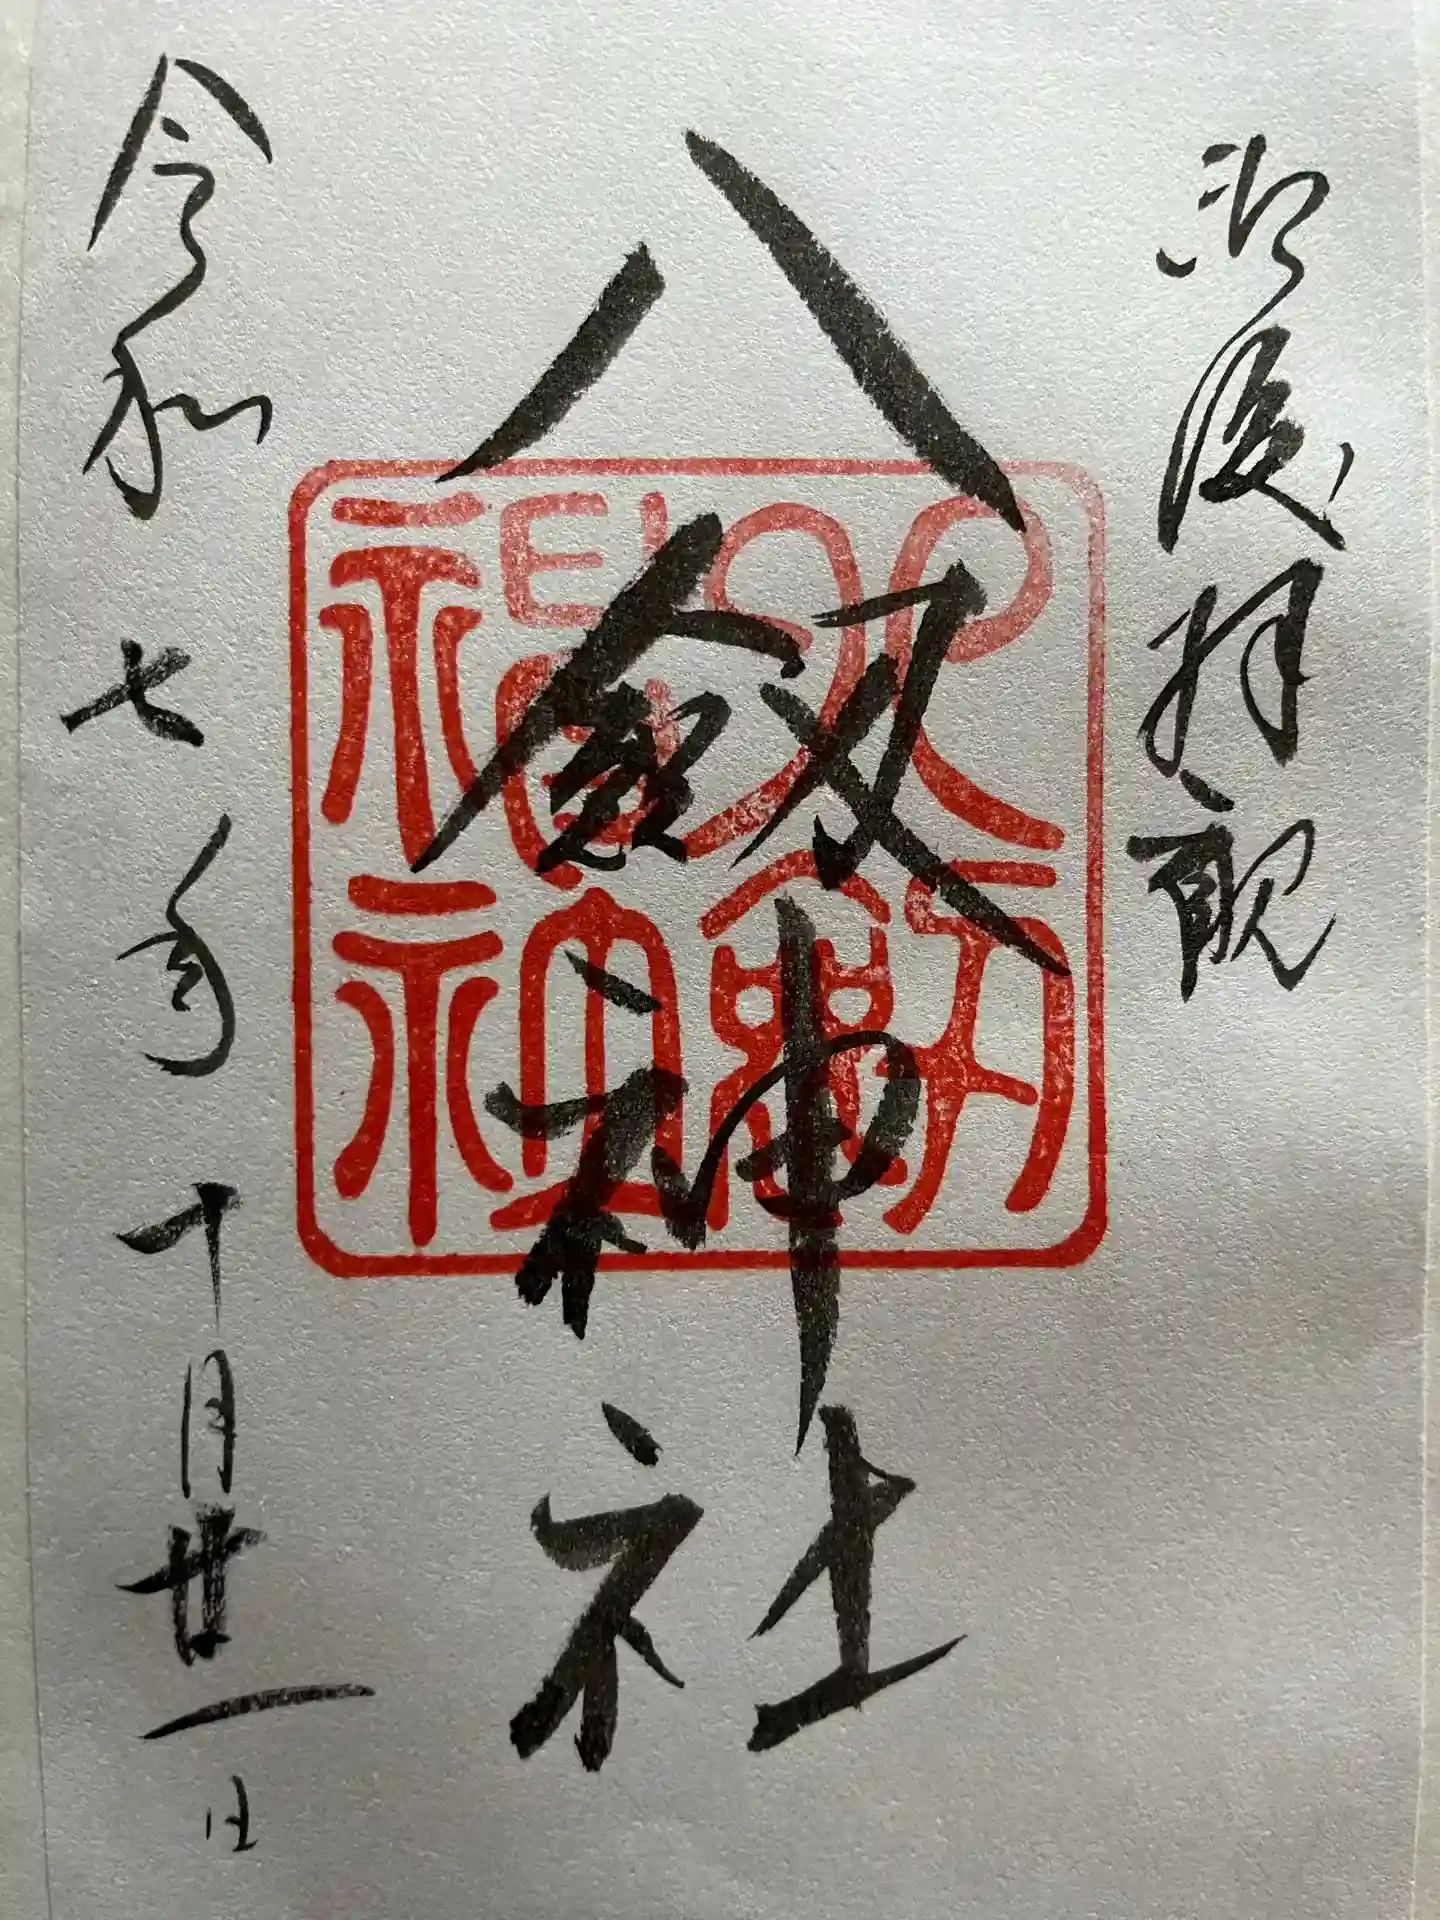 御渡拝観
八剱神社
八劔神社
令和七年十月廿一日